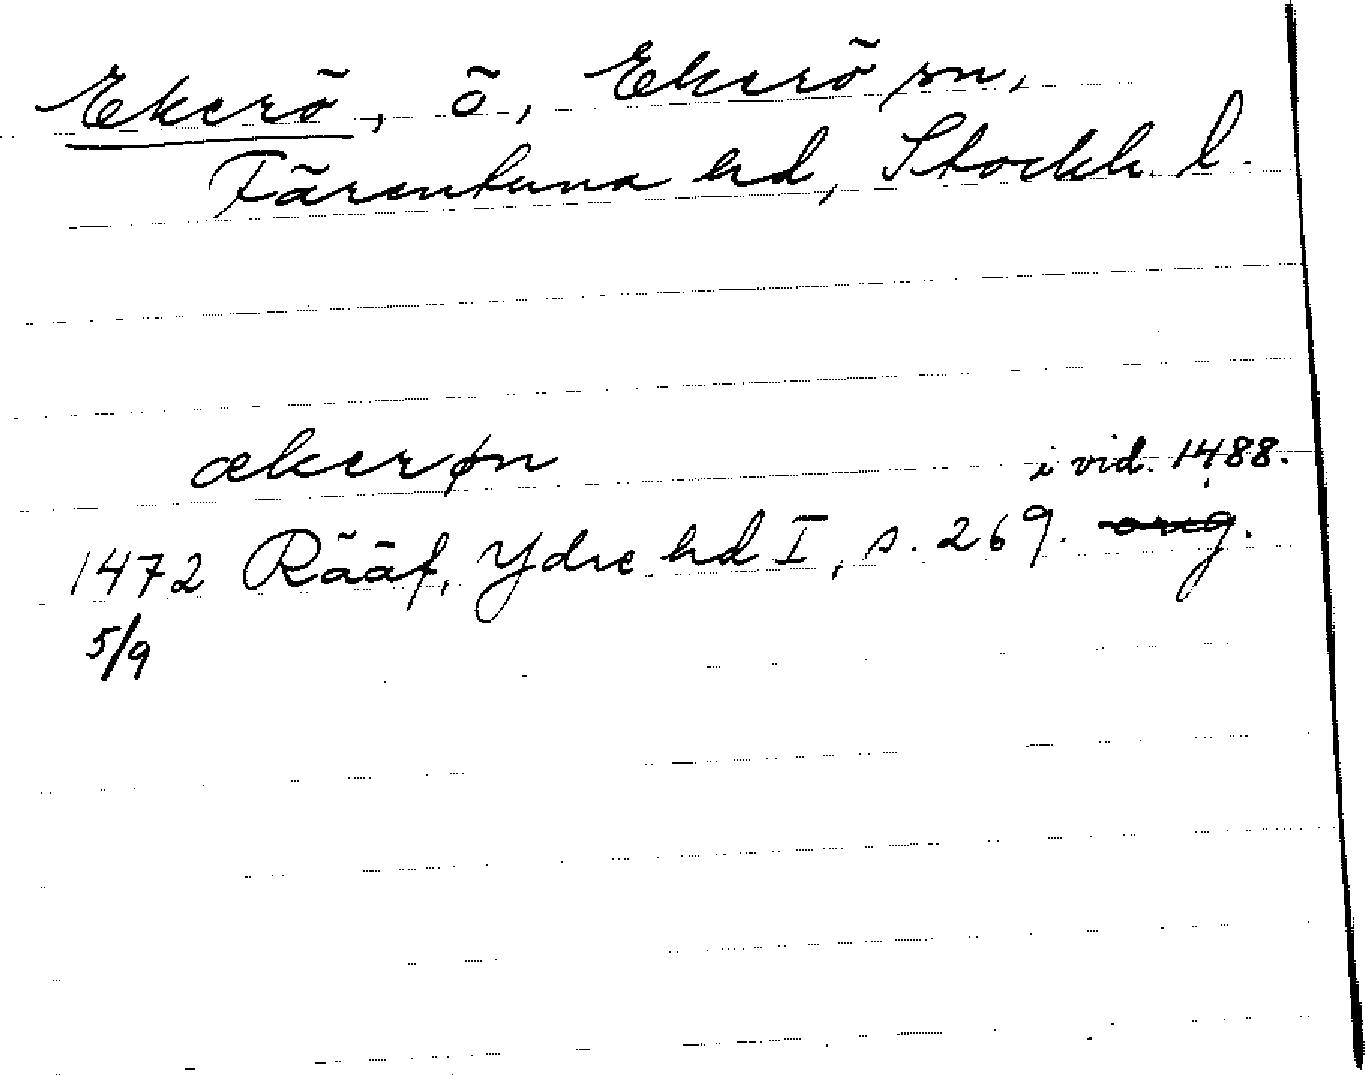 Ekerö, ö, Ekerö sn,
Färentuna hd, Stockh. l.
ækerøn i vid. 1488.
1472 Rääf, Ydre hd I, s. 269. orig.
5/9